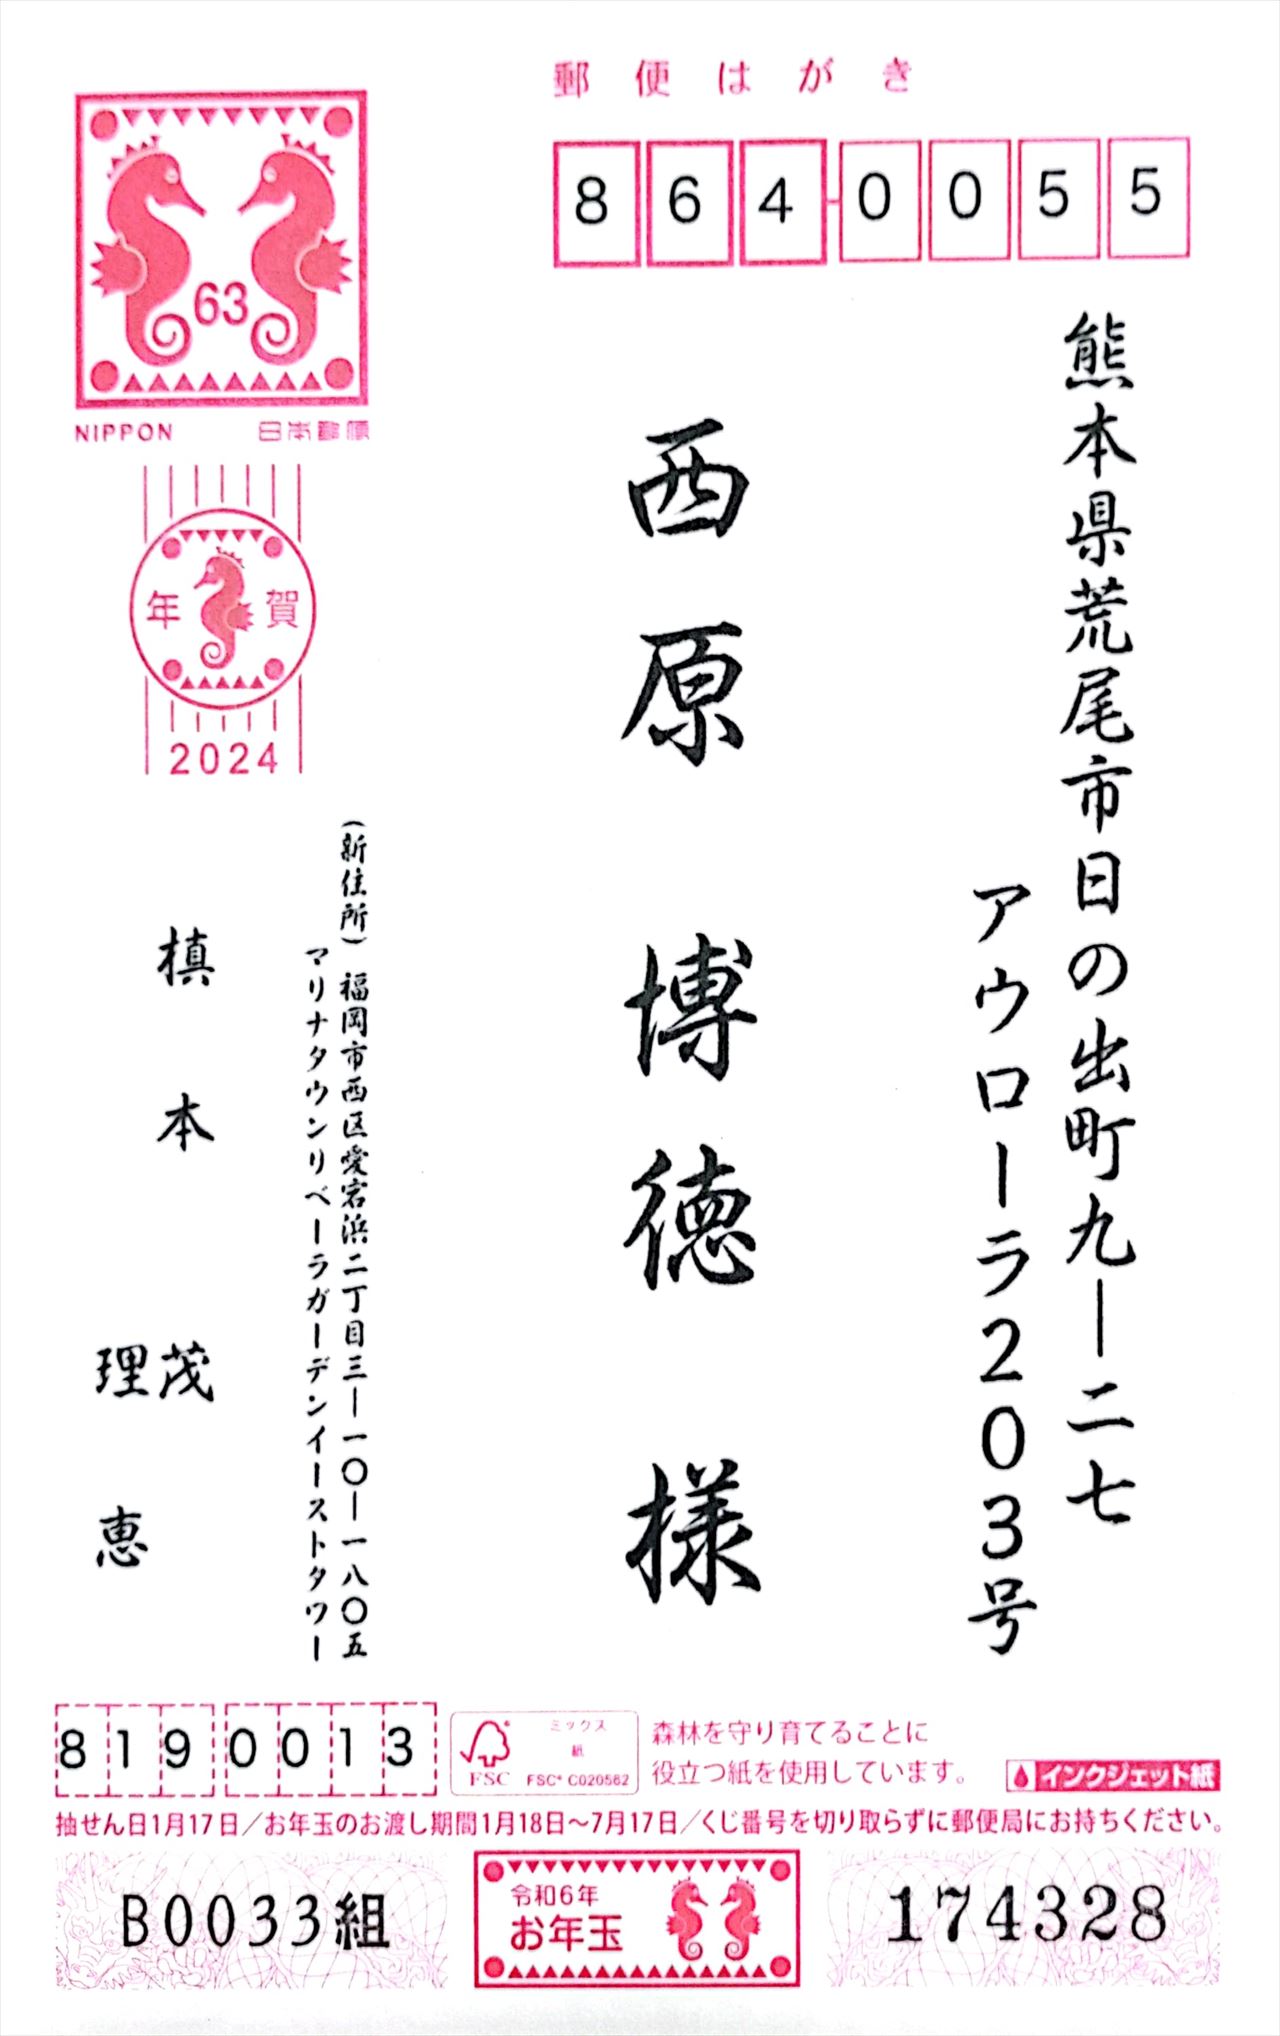 郵便はがき
864-0055
熊本県荒尾市日の出町九―二七
アウローラ203号
西原 博徳 様
63
NIPPON 日本郵便
年賀
2024
(新住所) 福岡市西区愛宕浜二丁目三―一〇―一八〇五
マリナタウンリベーラガーデンイーストタワー
槙本 茂
理恵
8190013
FSC
ミックス
紙
FSC® C020562
森林を守り育てることに
役立つ紙を使用しています。
インクジェット紙
抽せん日1月17日/お年玉のお渡し期間1月18日~7月17日/くじ番号を切り取らずに郵便局にお持ちください。
B0033組
令和6年
お年玉
174328